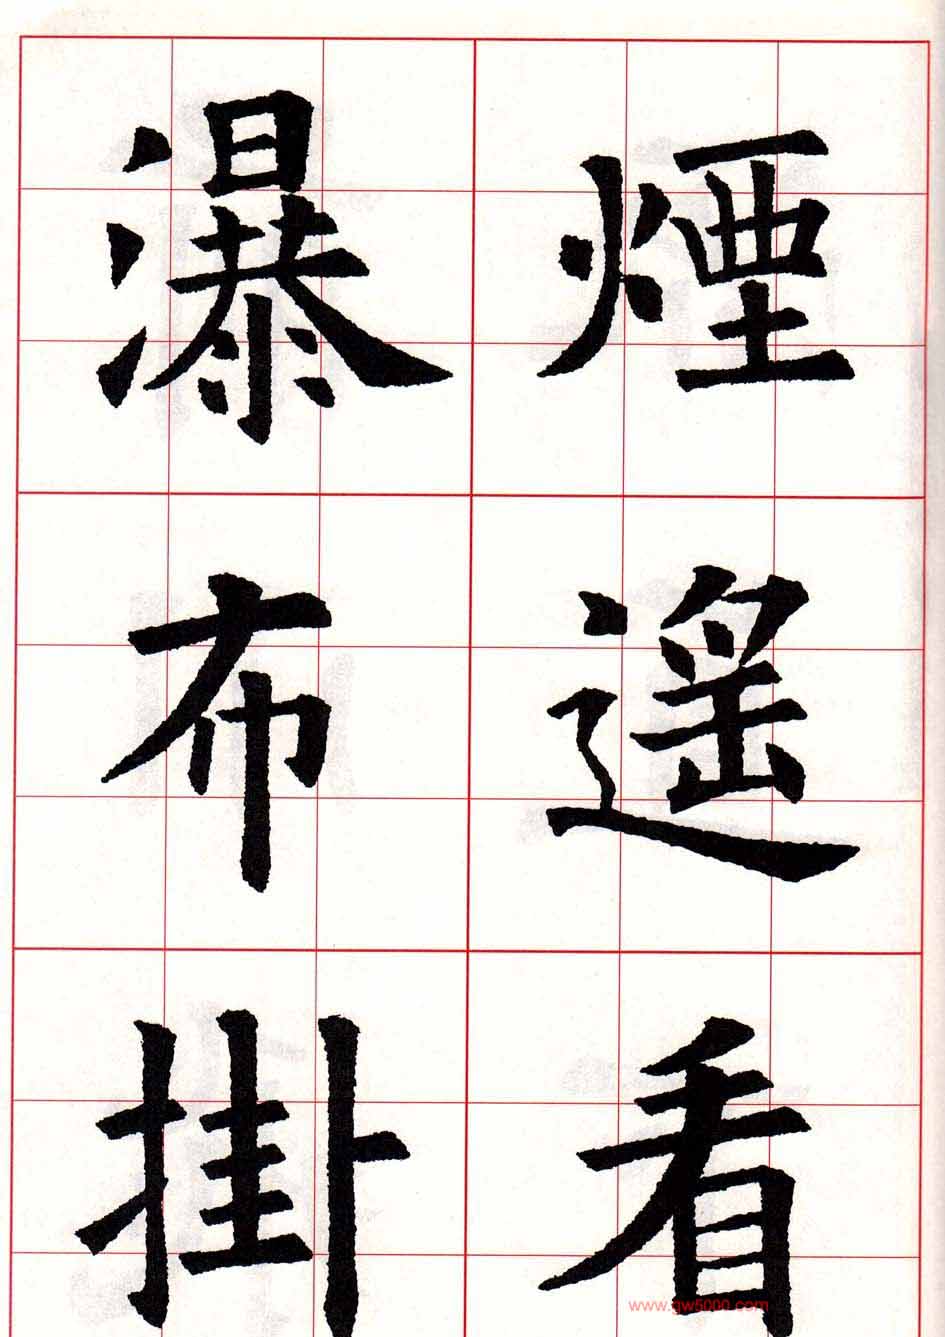 煙遥看
瀑布掛
www.gw5000.com